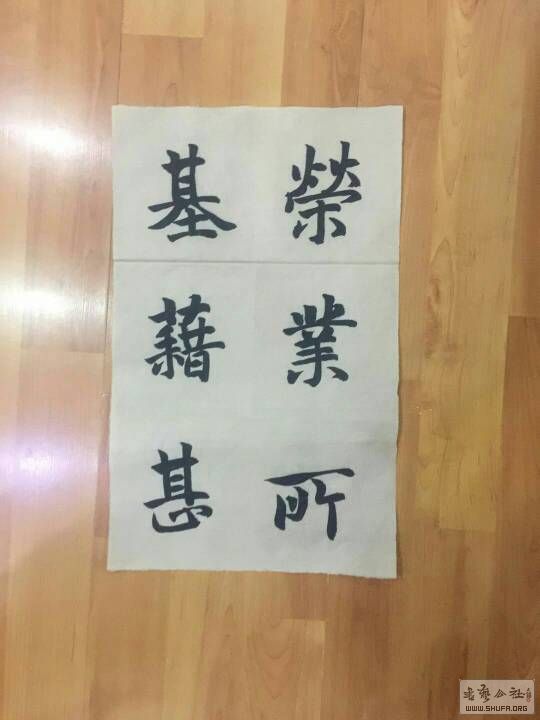 榮業所
基藉甚
書藝公社
WWW.SHUFA.ORG